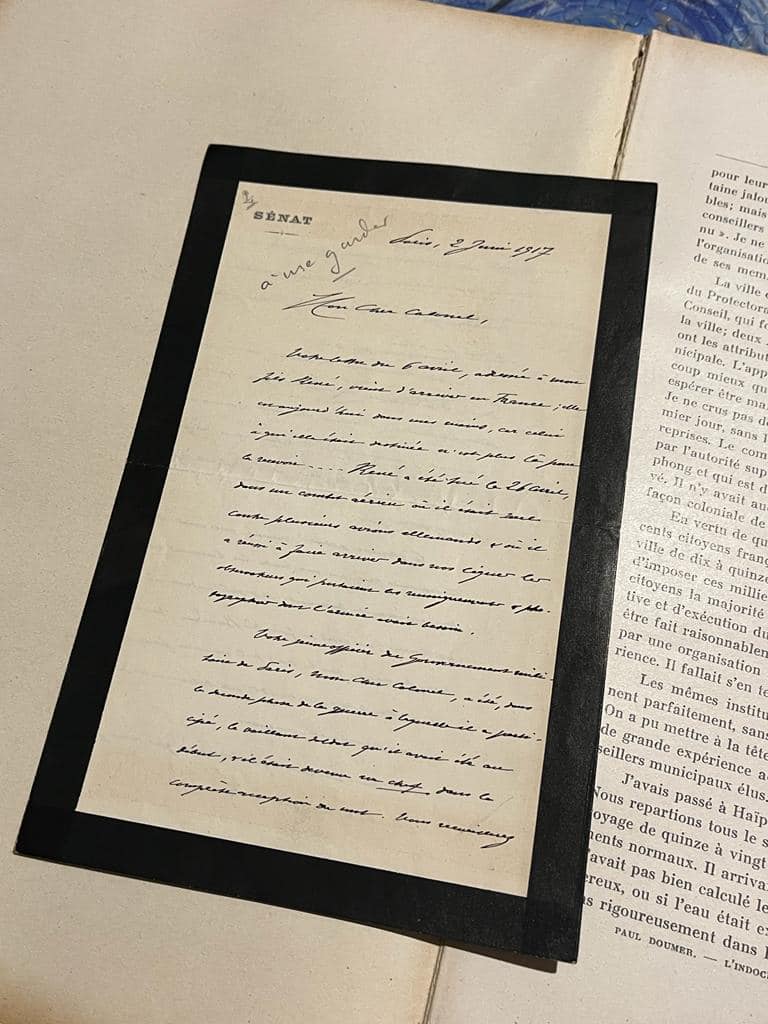 SÉNAT
à me garder
Paris, 2 Juin 1917
Mon Cher Colonel,
Votre lettre du 6 avril, adressée à mon
fils René, vient d'arriver en France ; elle
est aujourd'hui dans mes mains, car celui
à qui elle était destinée n'est plus là pour
la recevoir .... René a été tué le 26 avril,
dans un combat aérien où il était seul
contre plusieurs avions allemands & où il
a réussi à faire arriver dans nos lignes les
observateurs qui portaient les renseignements & pho-
tographies dont l'armée avait besoin.
Votre jeune officier du Gouvernement mili-
taire de Paris, mon cher Colonel, a été, dans
la seconde phase de la guerre à laquelle il a parti-
cipé, le vaillant soldat qu'il avait été au
début, & il était devenu un chef dans la
complète acception du mot. Vous reconnaîtrez
pour leur
taine jalou
bles; mais
conseillers
nu ». Je ne
l'organisatio
de ses mem
La ville
du Protectora
Conseil, qui fo
la ville; deux
ont les attribut
nicipale. L'app
coup mieux qu
espérer être mai
Je ne crus pas d
mier jour, sans l
reprises. Le com
par l'autorité sup
phong et qui est d
vé. Il n'y avait au
façon coloniale de
En vertu de qu
cents citoyens franç
ville de dix à quinze
d'imposer ces millie
citoyens la majorité
tive et d'exécution du
être fait raisonnablem
par une organisation
rience. Il fallait s'en te
Les mêmes institu
nent parfaitement, sans
On a pu mettre à la tête
de grande expérience a
seillers municipaux élus.
J'avais passé à Haïp
Nous repartions tous le s
voyage de quinze à vingt
ments normaux. Il arriva
avait pas bien calculé le
ereux, ou si l'eau était ex
s rigoureusement dans l
PAUL DOUMER. — L'INDOC